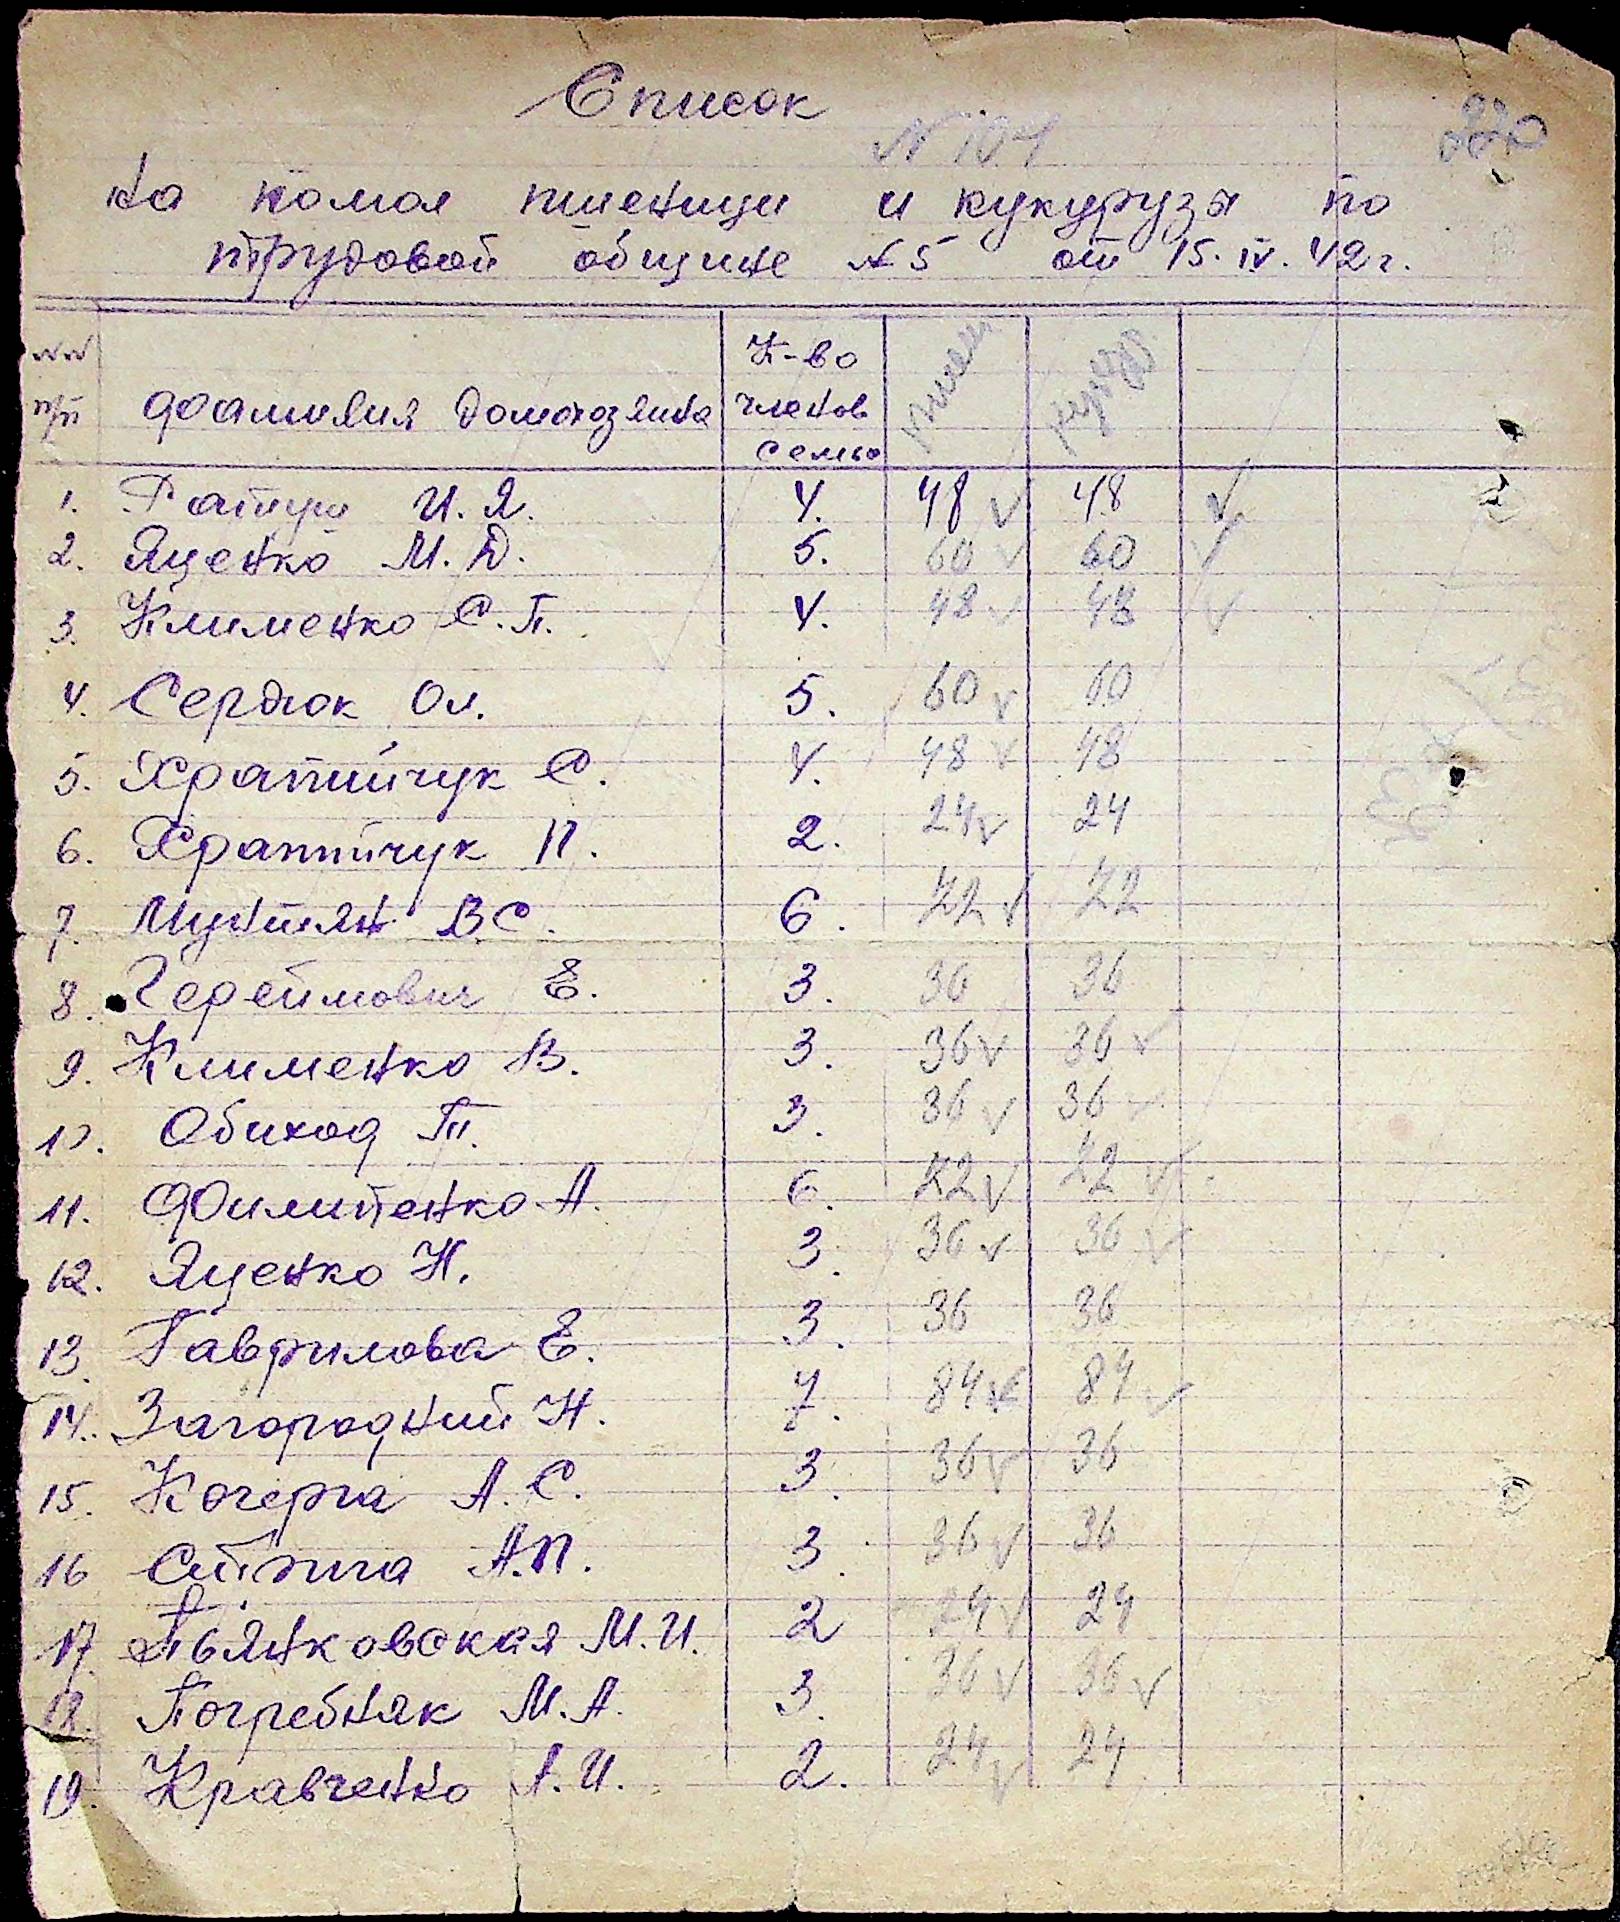 Список
N 104
220
на помол пшеници и кукурузы по
трудовой общине N 5 от 15. IV. 42 г.
NN п/п фамилия домохозяина К-во членов семьи пшен кукур
1. Ратуш И. Я. 4. 48 ✓ 48 ✓
2. Яценко М. Д. 5. 60 ✓ 60 ✓
3. Клименко С. П. 4. 48 ✓ 48 ✓
4. Сердюк Ол. 5. 60 ✓ 60
5. Храпийчук С. 4. 48 ✓ 48
6. Храпийчук П. 2. 24 ✓ 24
7. Мунтян В С. 6. 72 ✓ 72
8. Череймович Е. 3. 36 36
9. Клименко В. 3. 36 ✓ 36 ✓
10. Обиход П. 3. 36 ✓ 36 ✓
11. Филипенко А. 6. 72 ✓ 72 ✓
12. Яценко Н. 3. 36 ✓ 36 ✓
13. Гаврилова Е. 3. 36 36
14. Загородний Н. 7. 84 ✓ 84 ✓
15. Кочерга А. С. 3. 36 ✓ 36
16 А.П. 3. 36 ✓ 36
17. Пьянковская М. И. 2 24 ✓ 24
18. Погребняк М. А. 3. 36 ✓ 36 ✓
19. Кравченко А. И. 2. 24 ✓ 24